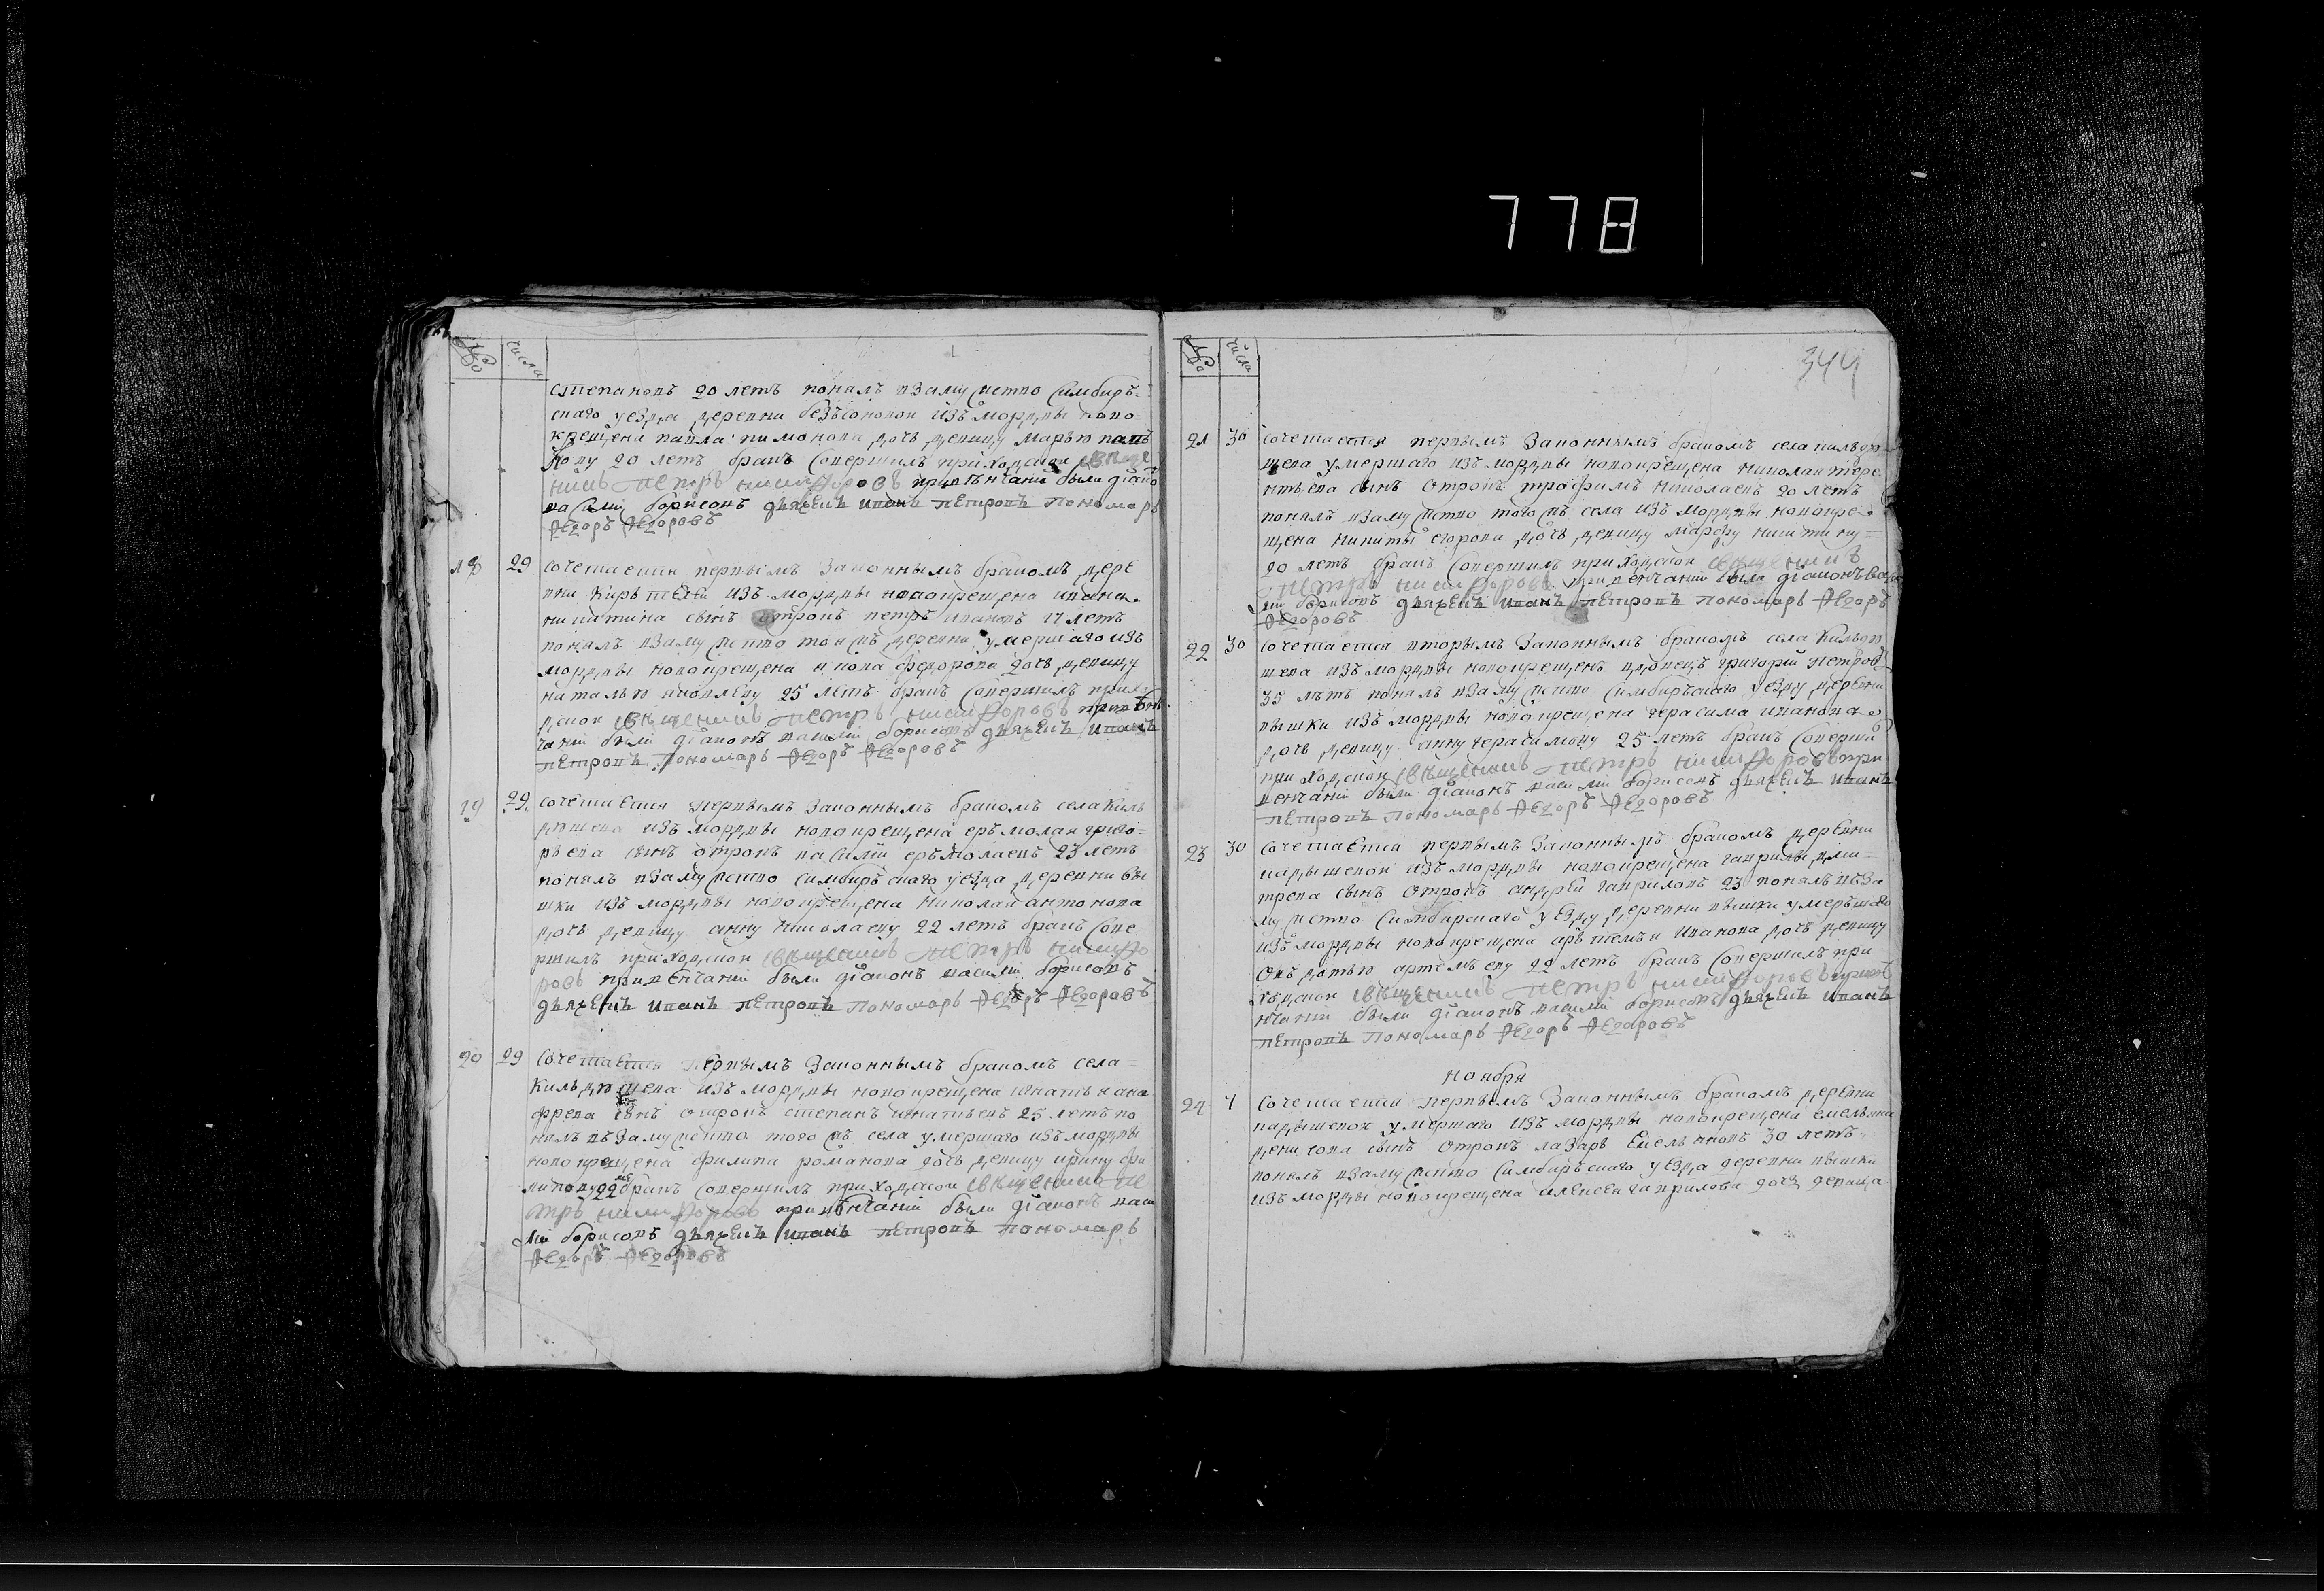 778
344
№ числа
степановъ 20 летъ понялъ взамужство Симбирь
скаго уезда деревни безсоновой изъ мордвы ново
крещена павла пимонова дочь девицу марью пав
лову 20 летъ бракъ совершилъ приходской свяще
никъ петръ никифоровъ привѣнчаніи были діако
василій борисовъ дьячекъ иванъ петровъ пономарь
Фегоръ Фегоровъ
18 29 сочетается первымъ законнымъ бракомъ дере
вни изъ мордвы новокрещена ивана
никитина сынъ отрокъ петръ ивановъ 17 летъ
понялъ взамужство той жъ деревни умершаго изъ
мордвы новокрещена якова федорова дочь девицу
наталью яковлеву 25 летъ бракъ совершилъ прихо
дской священикъ петръ никифоровъ привѣн
чаніи были діаконъ василій борисовъ дьячекъ иванъ
петровъ пономарь Фегоръ Фегоровъ
19 29 сочетается первымъ законнымъ бракомъ села Киль
дюшева изъ мордвы новокрещена ерьмолая григо
рьева сынъ отрокъ василій ерьмолаевъ 23 летъ
понялъ взамужство симбирьскаго уезда деревни вы
шки изъ мордвы новокрещена николая антонова
дочь девицу анну николаеву 22 летъ бракъ сове
ршилъ приходской священикъ петръ никифо
ровъ привенчаніи были діаконъ василій борисовъ
дьячекъ иванъ петровъ пономарь Фегоръ Фегоровъ
20 29 Сочетается первымъ законнымъ бракомъ села
Кильдюшева изъ мордвы новокрещена игнатья ано
фрева сынъ отрокъ степанъ игнатьевъ 25 летъ по
нялъ взамужство того жъ села умершаго изъ мордвы
новокрещена филипа романова дочь девицу ирину фи
липову 22 бракъ совершилъ приходской священикъ пе
тръ никифоровъ привѣнчаніи были діаконъ васи
лій борисовъ дьячекъ иванъ петровъ пономарь
Фегоръ Фегоровъ
№ числа
21 30 сочетается первымъ законнымъ бракомъ села кильдю
шева умершаго изъ мордвы новокрещена николая тере
нтьева сынъ отрокъ трофимъ николаевъ 20 летъ
понялъ взамужство того жъ села изъ мордвы новокре
щена никиты егорова дочь девицу марфу никитину
20 летъ бракъ совершилъ приходской священикъ
петръ никифоровъ привенчаніи были діаконъ васи
лій борисовъ дьячекъ иванъ петровъ пономарь Фегоръ
Фегоровъ
22 30 сочетается вторымъ законнымъ бракомъ села Кильдю
шева изъ мордвы новокрещенъ вдовецъ григорій петровъ
35 лѣтъ понялъ взамужство Симбирьскаго уезду деревни
вышки изъ мордвы новокрещена герасима иванова
дочь девицу анну герасимову 25 летъ бракъ соверши
приходской священикъ петръ никифоровъ при
венчаніи были діаконъ василій борисовъ дьячекъ иванъ
петровъ пономарь Фегоръ Фегоровъ
23 30 сочетается первымъ законнымъ бракомъ деревни
изъ мордвы новокрещена гаврилы дми
трева сынъ отрокъ андрей гавриловъ 23 понялъ въза
мужство Симбирскаго уезду деревни вышки умершаго
изъ мордвы новокрещена арьтемья иванова дочь девицу
овьдотью артемьеву 22 летъ бракъ совершилъ при
ходской священикъ петръ никифоровъ привѣ
нчаніи были діаконъ василій борисовъ дьячекъ иванъ
петровъ пономарь Фегоръ Фегоровъ
ноября
24 1 Сочетается первымъ законнымъ бракомъ деревни
умершаго изъ мордвы новокрещена емельяна
денисова сынъ отрокъ лазарь Емельяновъ 30 летъ
понялъ взамужство Симбирьскаго уезда деревни вышки
изъ мордвы новокрещена алексея гаврилова дочь девица